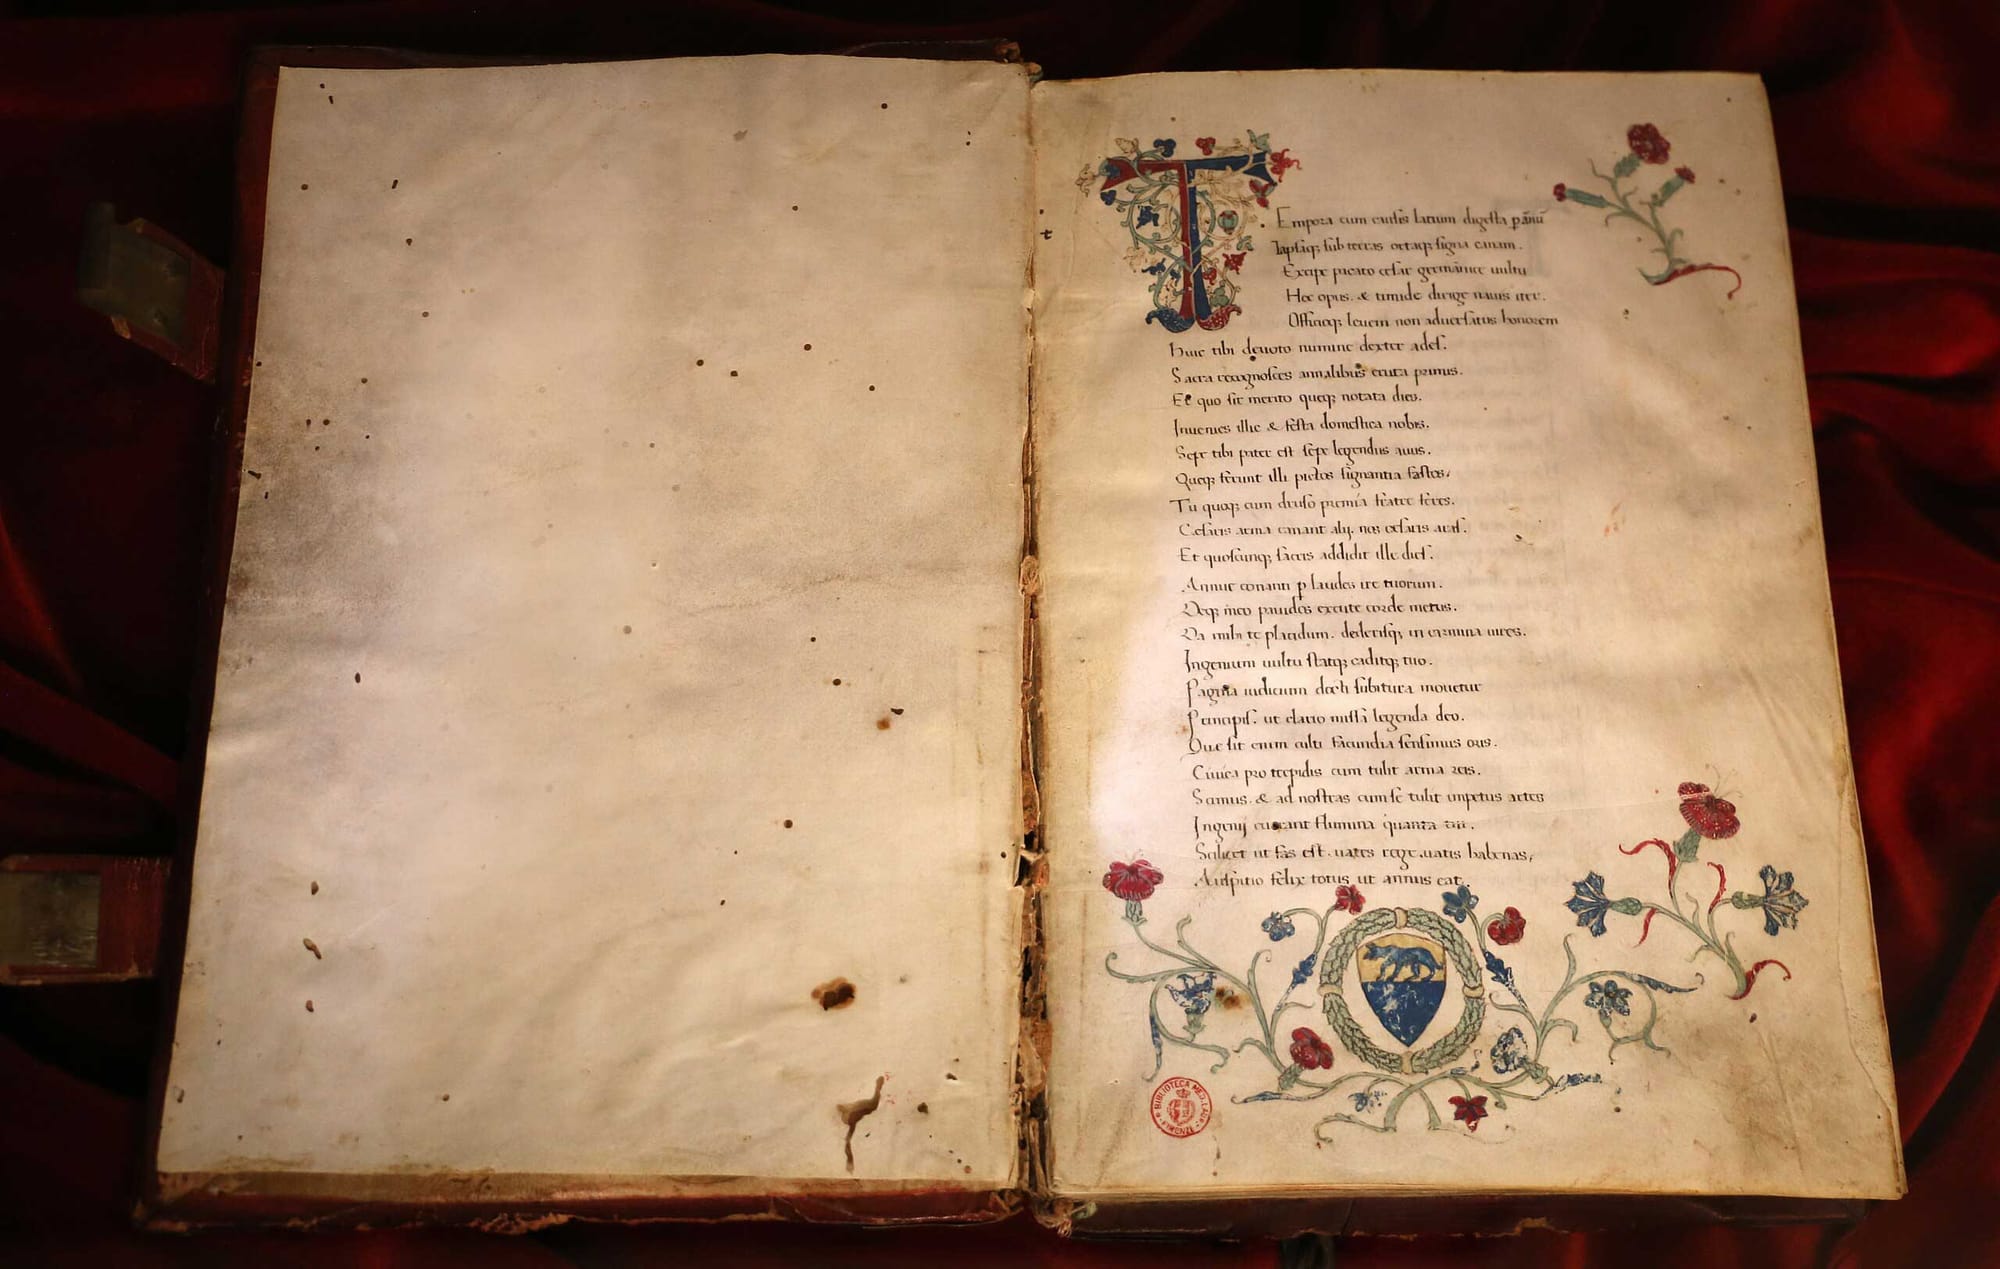 t
TEmpora cum causis latium digesta p ānū
Lapsaq; sub terras ortaq; signa canam.
Excipe pacato cesar germanice uultu
Hoc opus. & timide dirige nauis iter.
Officioq; leuem non aduersatus honorem
Huic tibi deuoto numine dexter ades.
Sacra recognosces annalibus eruta priscis.
Et quo sit merito queq; notata dies.
Inuenies illic & festa domestica nobis.
Sepe tibi pater est sepe legendus auus.
Queq; ferunt illi pictos signantia fastos.
Tu quoq; cum druso premia fratre feres.
Cesaris arma canant alij. nos cesaris aras.
Et quoscunq; sacris addidit ille dies.
Annue conanti p laudes ire tuorum.
Deq; meo pauidos excute corde metus.
Da mihi te placidum. dederisq; in carmina uires.
Ingenium uultu statq; caditq; tuo.
Pagina iudicium docti subitura mouetur
Principis. ut clario missa legenda deo.
Que sit enim culti facundia sensimus oris.
Ciuica pro trepidis cum tulit arma reis.
Scimus. & ad nostras cum se tulit impetus artes
Ingenij currant flumina quanta tui.
Scilicet ut fas est. uates rege uatis habenas,
Auspitio felix totus ut annus eat.
BIBLIOTECA MED. LAUR. FIRENZE